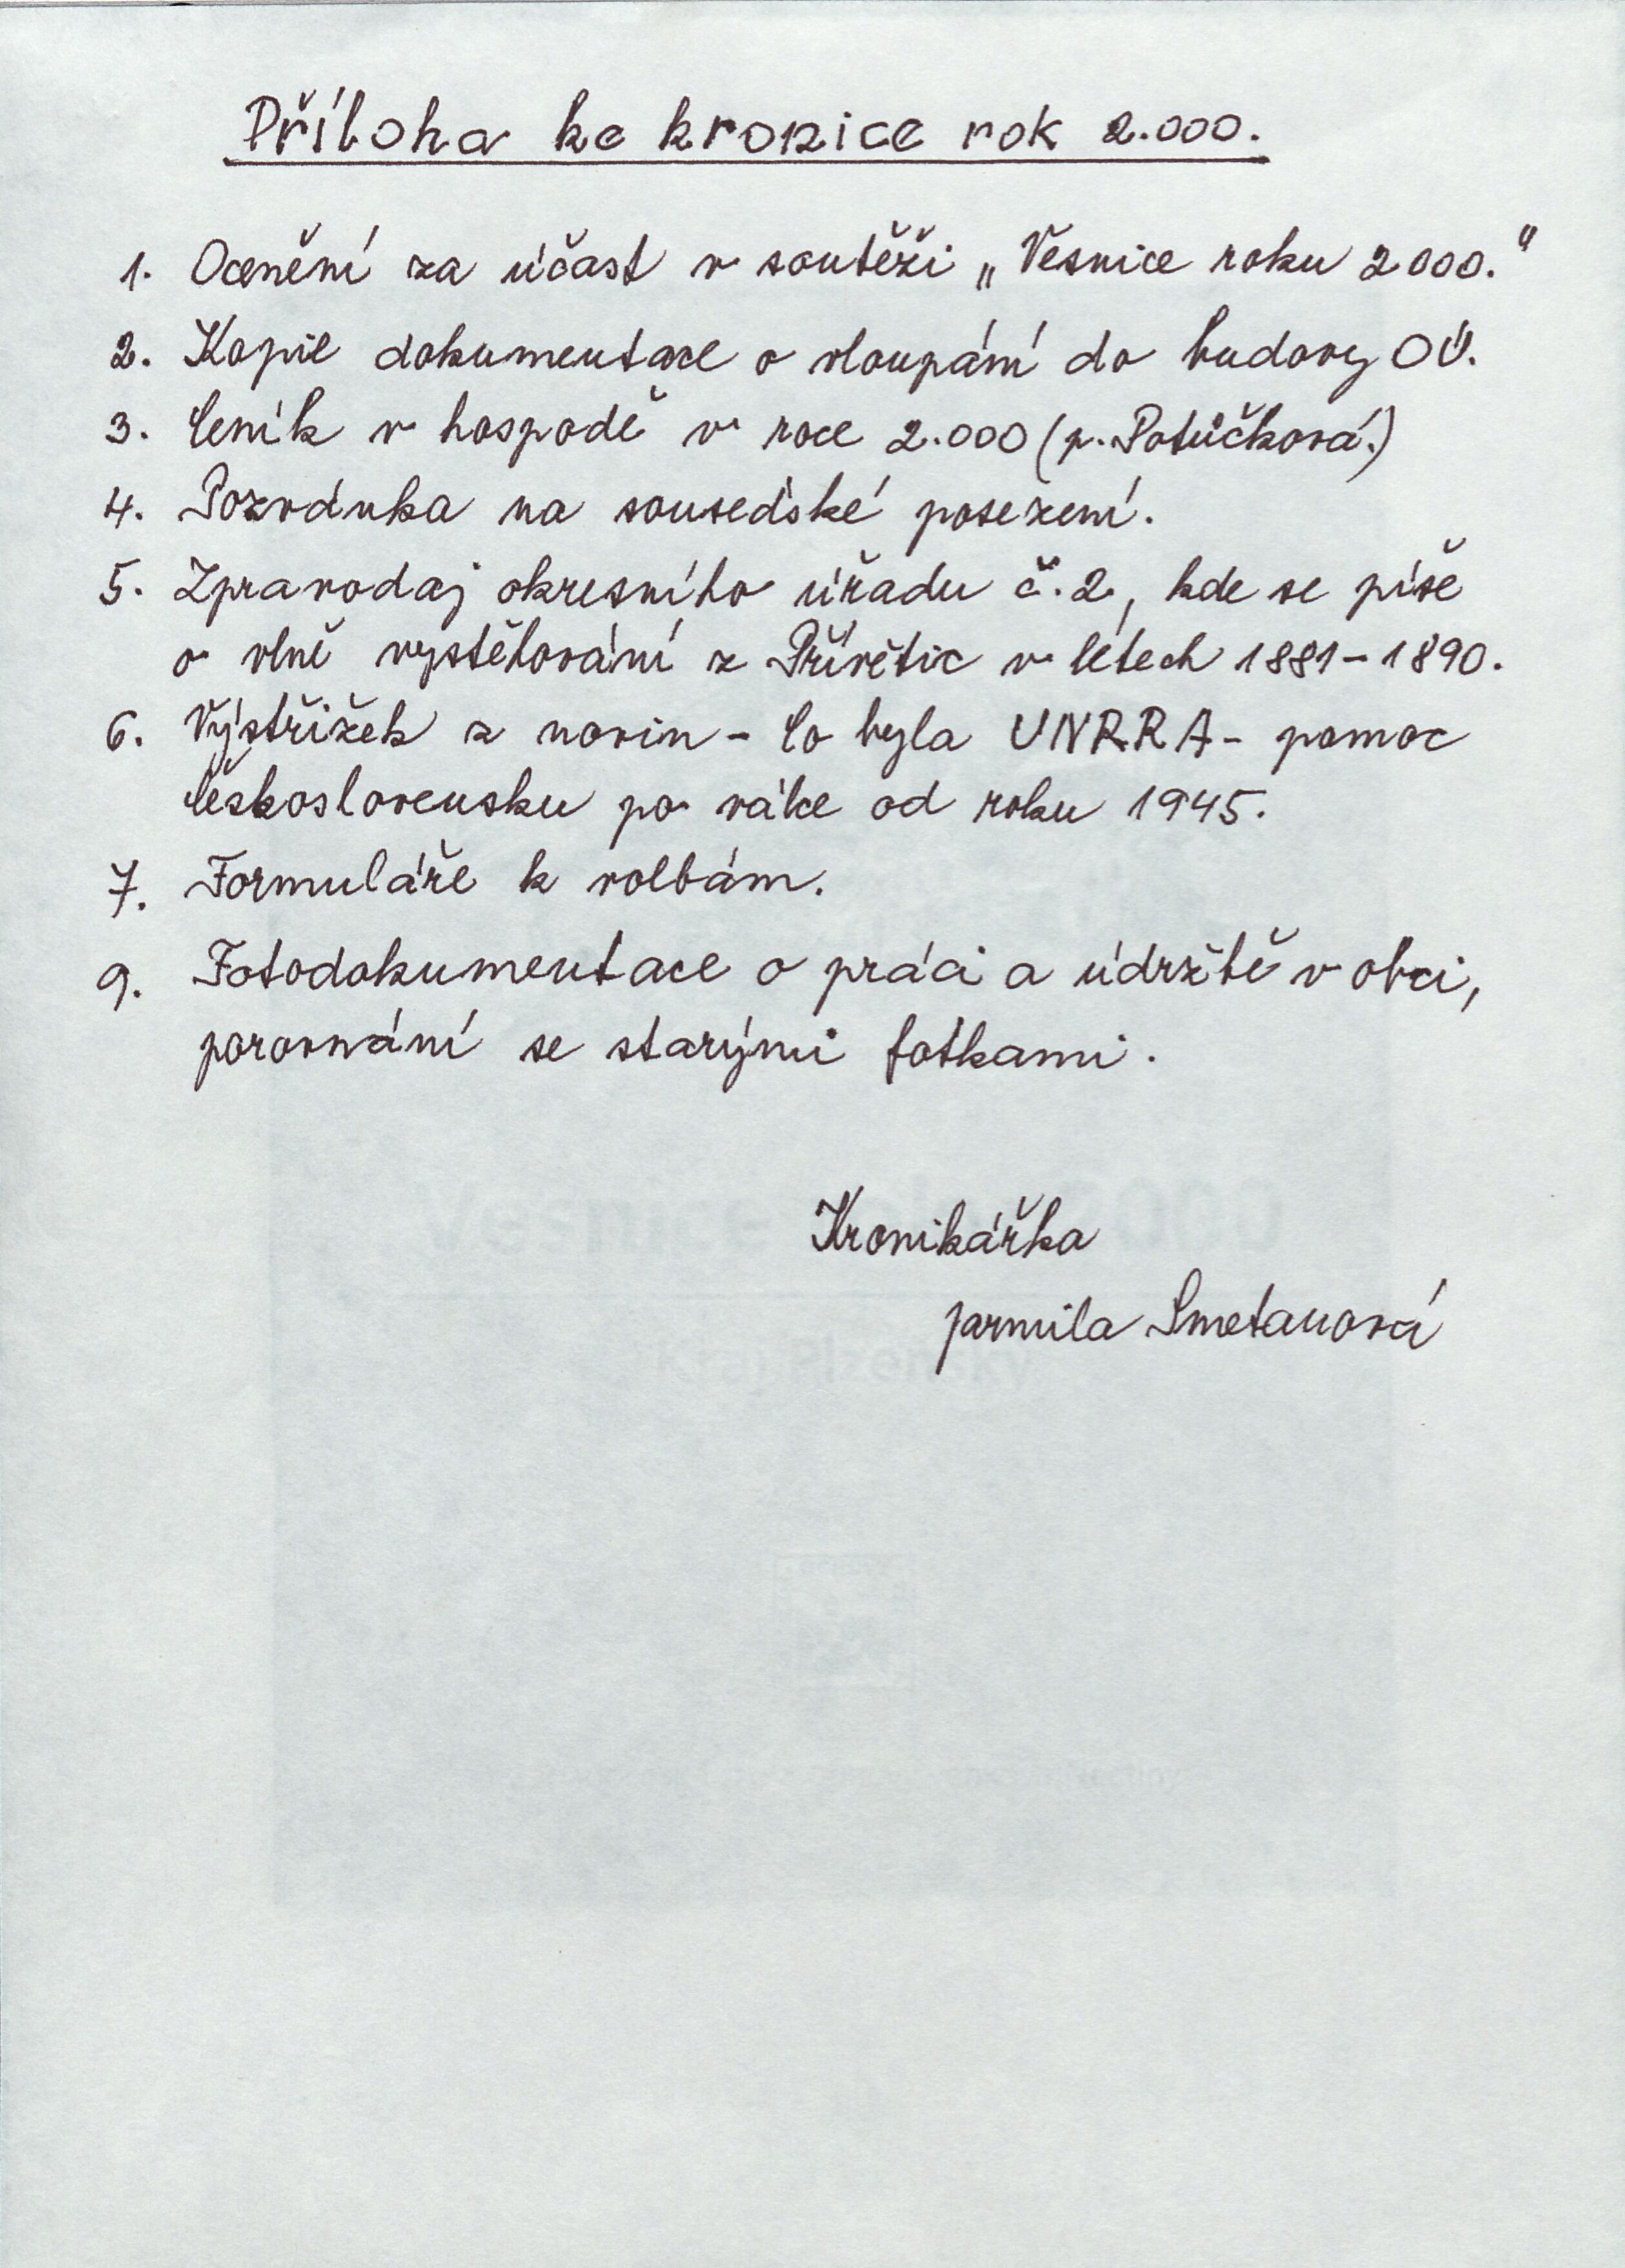 Příloha ke kronice rok 2.000.
1. Ocenění za účast v soutěži „Vesnice roku 2000."
2. Kopie dokumentace o vloupání do budovy OÚ.
3. Ceník v hospodě v roce 2.000 (p. Potůčková.)
4. Pozvánka na sousedské posezení.
5. Zpravodaj okresního úřadu č. 2, kde se píše
o vlně vystěhování z Přívětic v létech 1881-1890.
6. Výstřižek z novin - Co byla UNRRA - pomoc
Československu po válce od roku 1945.
7. Formuláře k volbám.
9. Fotodokumentace o práci a údržbě v obci,
porovnání se starými fotkami.
Kronikářka
Jarmila Smetanová
Kraj Plzeňský